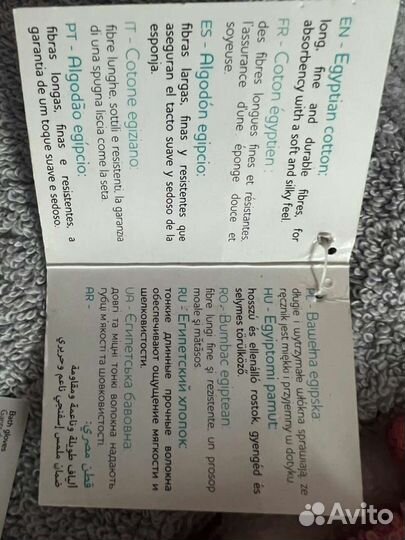 EN - Egyptian cotton:
long, fine and durable fibres, for
absorbency with a soft and silky feel.
FR - Coton égyptien :
des fibres longues fines et résistantes,
l'assurance d'une éponge douce et
soyeuse.
ES - Algodón egipcio:
fibras largas, finas y resistentes que
aseguran el tacto suave y sedoso de la
esponja.
IT - Cotone egiziano:
fibre lunghe, sottili e resistenti, la garanzia
di una spugna liscia come la seta.
PT - Algodão egípcio:
fibras longas, finas e resistentes, a
garantia de um toque suave e sedoso.
PL - Bawełna egipska
długie i wytrzymałe włókna sprawiają, że
ręcznik jest miękki i przyjemny w dotyku
HU - Egyiptomi pamut:
hosszú és ellenálló rostok, gyengéd és
selymes törülköző.
RO - Bumbac egiptean:
fibre lungi fine și rezistente, un prosop
moale și mătăsos.
RU - Египетский хлопок:
тонкие длинные прочные волокна
обеспечивают ощущение мягкости и
шелковистости.
UA - Єгипетська бавовна
довгі та міцні тонкі волокна надають
губці м'якості та шовковистості.
AR - قطن مصري:
ألياف طويلة وناعمة ومقاومة
ضمان ملمس إسفنجي ناعم وحريري
Bath gloves
Avito